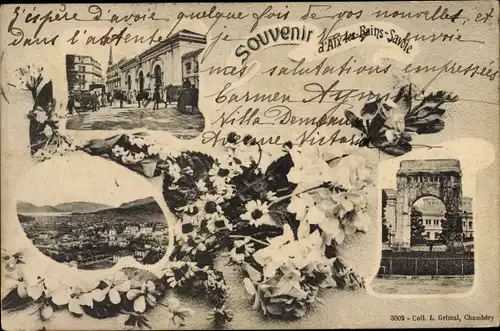 J'espère d'avoie quelque fois de vos nouvelles, et
dans l'attente je vous envoie
Souvenir
d'Aix-les-Bains-Savoie
mes salutations empressées
Carmen
Villa
Avenue Victoria
3002 - Coll. L. Grimal, Chambéry